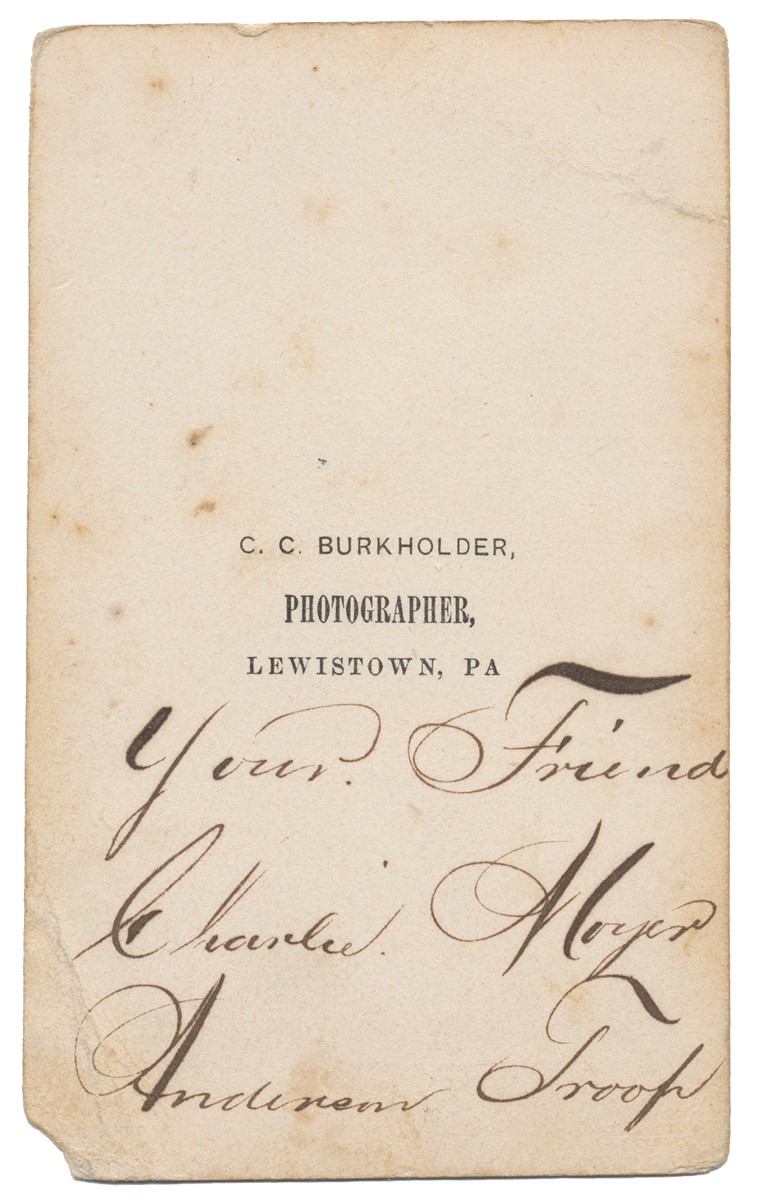 C. C. BURKHOLDER,
PHOTOGRAPHER,
LEWISTOWN, PA
Your. Friend
Charlie. Moyer
Anderson Troop